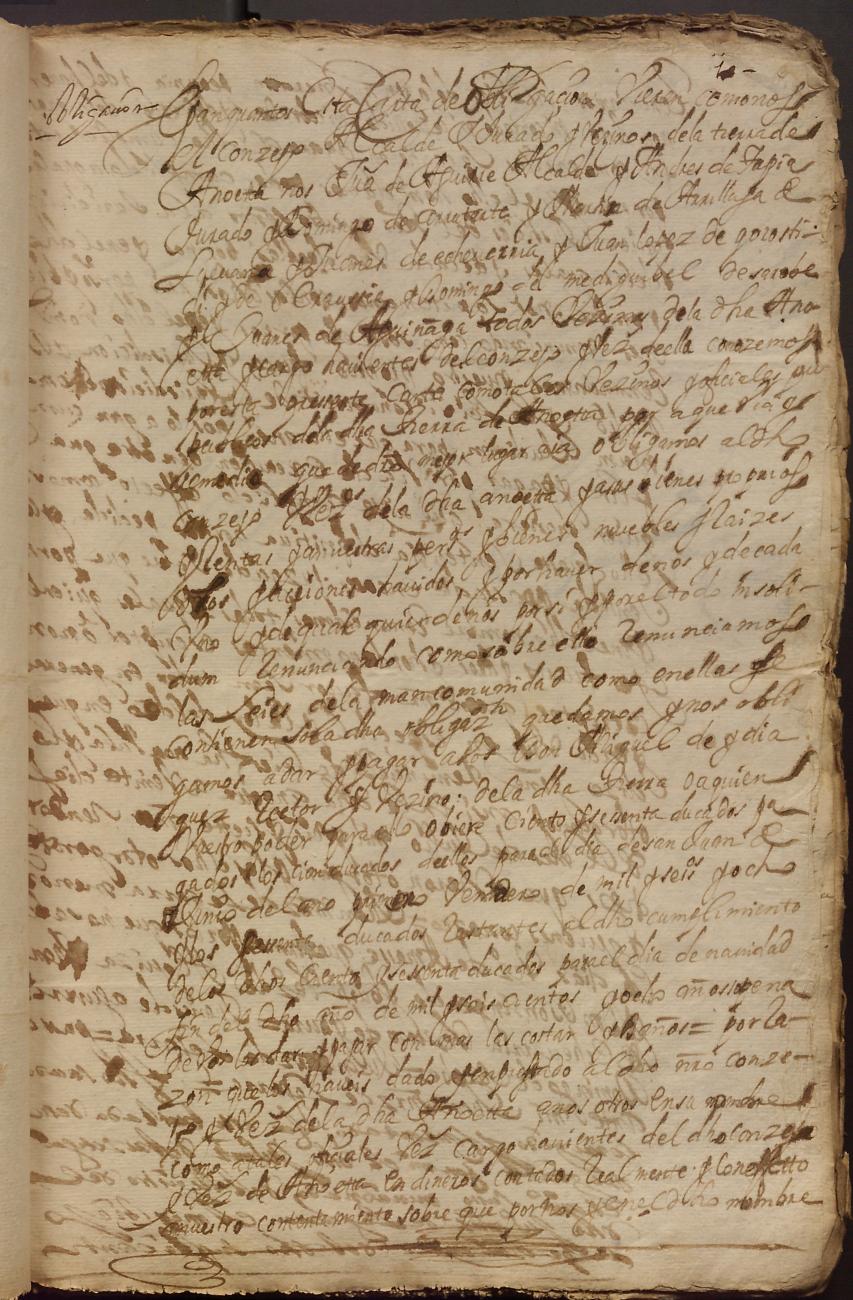 obligaçion
Sepan quantos esta Carta de obligaçion Vieren como nos
el conzejo Alcalde Jurado y Vezinos de la tierra de
Anoeta nos Juº de Aguirre Alcalde y Andres de Tapia
Jurado y Domingo de y Martin de de
y Joanes de echeverria y Juan lopez de gorosti
y de y Domingo de
y Joanes de Aguinaga todos Vezinos de la dha Ano
eta y cargo havientes del conzejo y Vezº de ella conozemos
por esta presente carta como tales Vezinos y ofiçiales
publicos de la dha tierra de Anoeta por aquella Via y
Remedio que de drº mejor lugar aia obligamos al dho
conzejo y Vezº de la dha anoeta y a sus bienes propios
y Rentas y a nuestras persºs y bienes muebles y Raizes
drºs y açiones havidos y por haver de nos y de cada
Vno y de qual quier de nos por si y por el todo insoli
dum Renunciando como sobre ello Renunciamos
las Leies de la mancomunidad como en ellas se
contienen so la dha obligazn quedamos y nos obli
gamos a dar y pagar a Vos Miguel de ydia
quez Retor y Vezino de la dha tierra o a quien
Vuestro poder para ello obiere çiento y sesenta ducados pa
gados los çien ducados dellos para el dia de san Juan de
Junio del año primero Venidero de mil y seisº y ocho
y los sesenta ducados Restantes al dho cumplimiento
de los dhos Çiento y sesenta ducados para el dia de navidad
fin del dho año de mil y seis çientos y ocho años so pena
de Vos los dar y pagar con mas las costas y daños = por la
zon que los haveis dado y enprestado al dho nrº conze
jo y Vezº de la dha Anoeta y a nos otros en su nombre
como a tales ofiçiales y Vezº cargo havientes del dho conzejo
y Vezº de Anoeta en dineros contados Realmente y con efetto
a nuestro contentamiento sobre que por nos y en el dho nombre